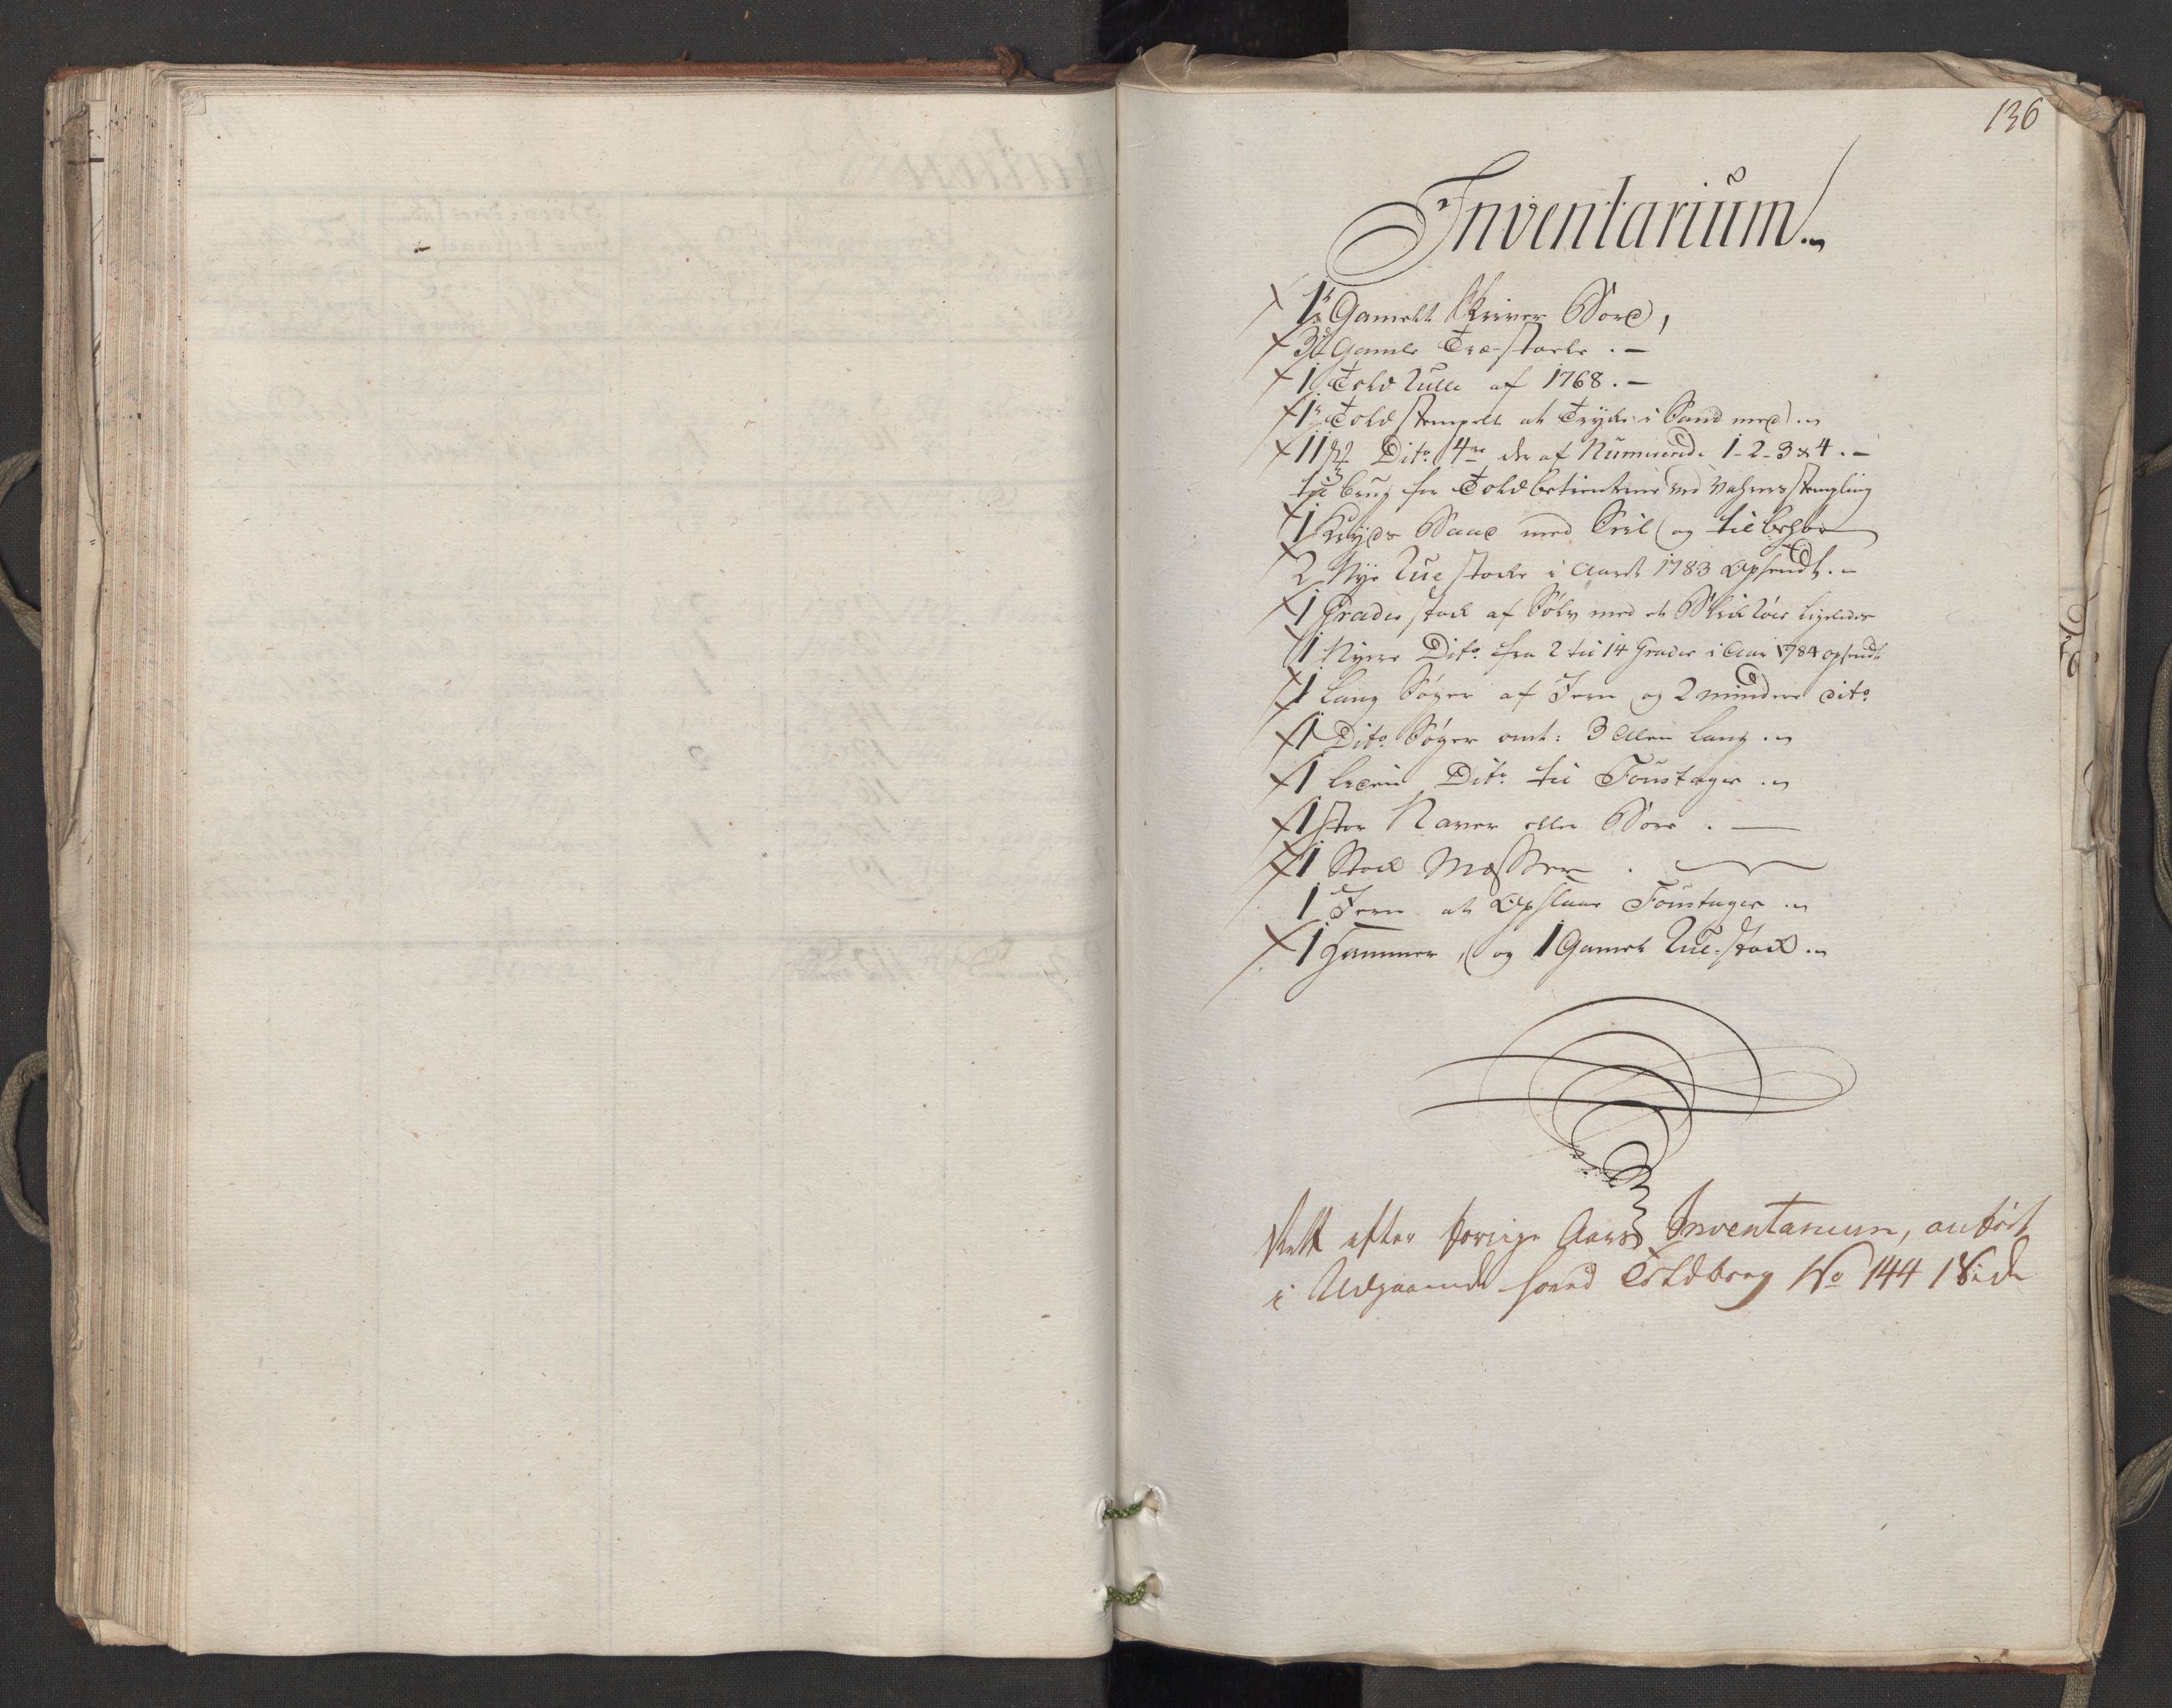 136
Inventarium
1t Gamelt Skriver Bord,
3de Gamle Træ-stocke . —
1 Told Rulle af 1768. —
1t Told stempell at Trykke i Sand med
11 st. Dito 4re der af Numererede 1-2-3 & 4. —
til brug for Toldbetienterne ved Vahres stempling
1 Kryds Baand med Seil og tilbehør
2 Nye Rue stocke i Aaret 1783 Opsendt. —
1 Grade stock af Sølv med et Blik Røer ligeledes
1 Nyere Dito fra 2 til 14 Grader i Aar 1784 opsendt
1 lang Søger af Jern og 2 mindre dito
1 Dito Søger omt: 3 Alen lang
1 liden Dito til Foustager
1 stor Naver eller Bore . —
1 Stock Mæsser .
1 Jern at Opslaae Foustager
1 Hammer, og 1 Gamel Rue-stock
Rett efter forrige Aars Inventarium, anført
i Udgaaende Hoved Toldbog No 144 Side